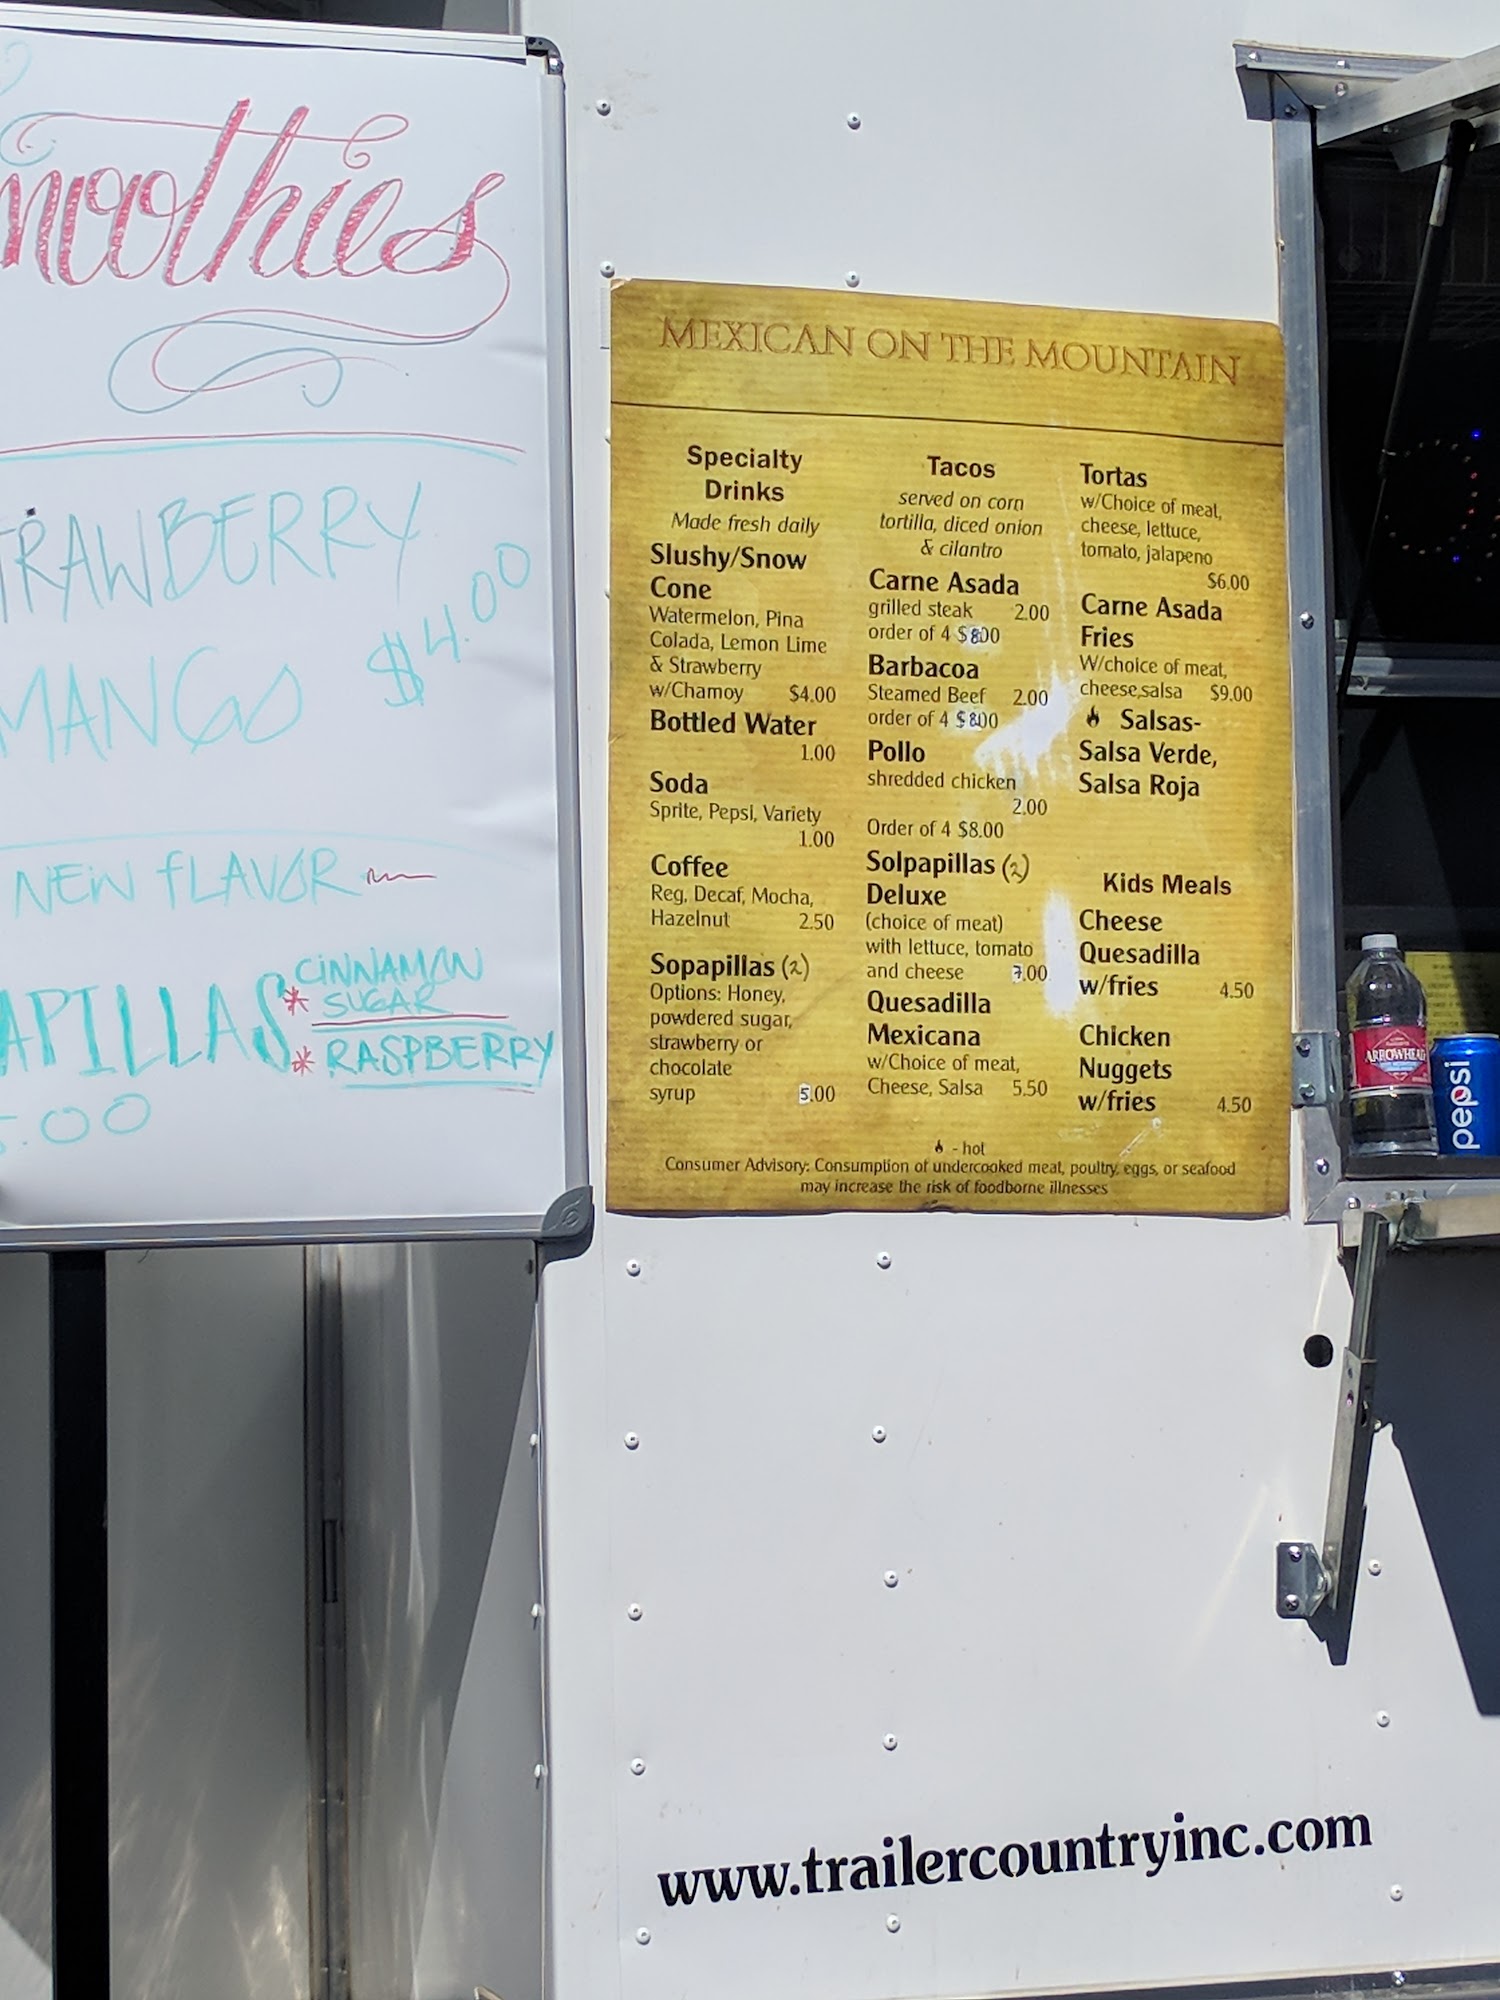 moothies
TRAWBERRY
MANGO $4.00
NEW fLAVOR
APILLAS * CINNAMON
SUGAR
* RASPBERRY
5.00
MEXICAN ON THE MOUNTAIN
Specialty
Drinks
Made fresh daily
Slushy/Snow
Cone
Watermelon, Pina
Colada, Lemon Lime
& Strawberry
w/Chamoy $4.00
Bottled Water
1.00
Soda
Sprite, Pepsi, Variety
1.00
Coffee
Reg, Decaf, Mocha,
Hazelnut 2.50
Sopapillas (2)
Options: Honey,
powdered sugar,
strawberry or
chocolate
syrup 5.00
Tacos
served on corn
tortilla, diced onion
& cilantro
Carne Asada
grilled steak 2.00
order of 4 $8.00
Barbacoa
Steamed Beef 2.00
order of 4 $8.00
Pollo
shredded chicken
2.00
Order of 4 $8.00
Solpapillas (2)
Deluxe
(choice of meat)
with lettuce, tomato
and cheese 7.00
Quesadilla
Mexicana
w/Choice of meat,
Cheese, Salsa 5.50
Tortas
w/Choice of meat,
cheese, lettuce,
tomato, jalapeno
$6.00
Carne Asada
Fries
W/choice of meat,
cheese,salsa $9.00
Salsas-
Salsa Verde,
Salsa Roja
Kids Meals
Cheese
Quesadilla
w/fries 4.50
Chicken
Nuggets
w/fries 4.50
- hot
Consumer Advisory: Consumption of undercooked meat, poultry, eggs, or seafood
may increase the risk of foodborne illnesses
ARROWHEAD
pepsi
www.trailercountryinc.com